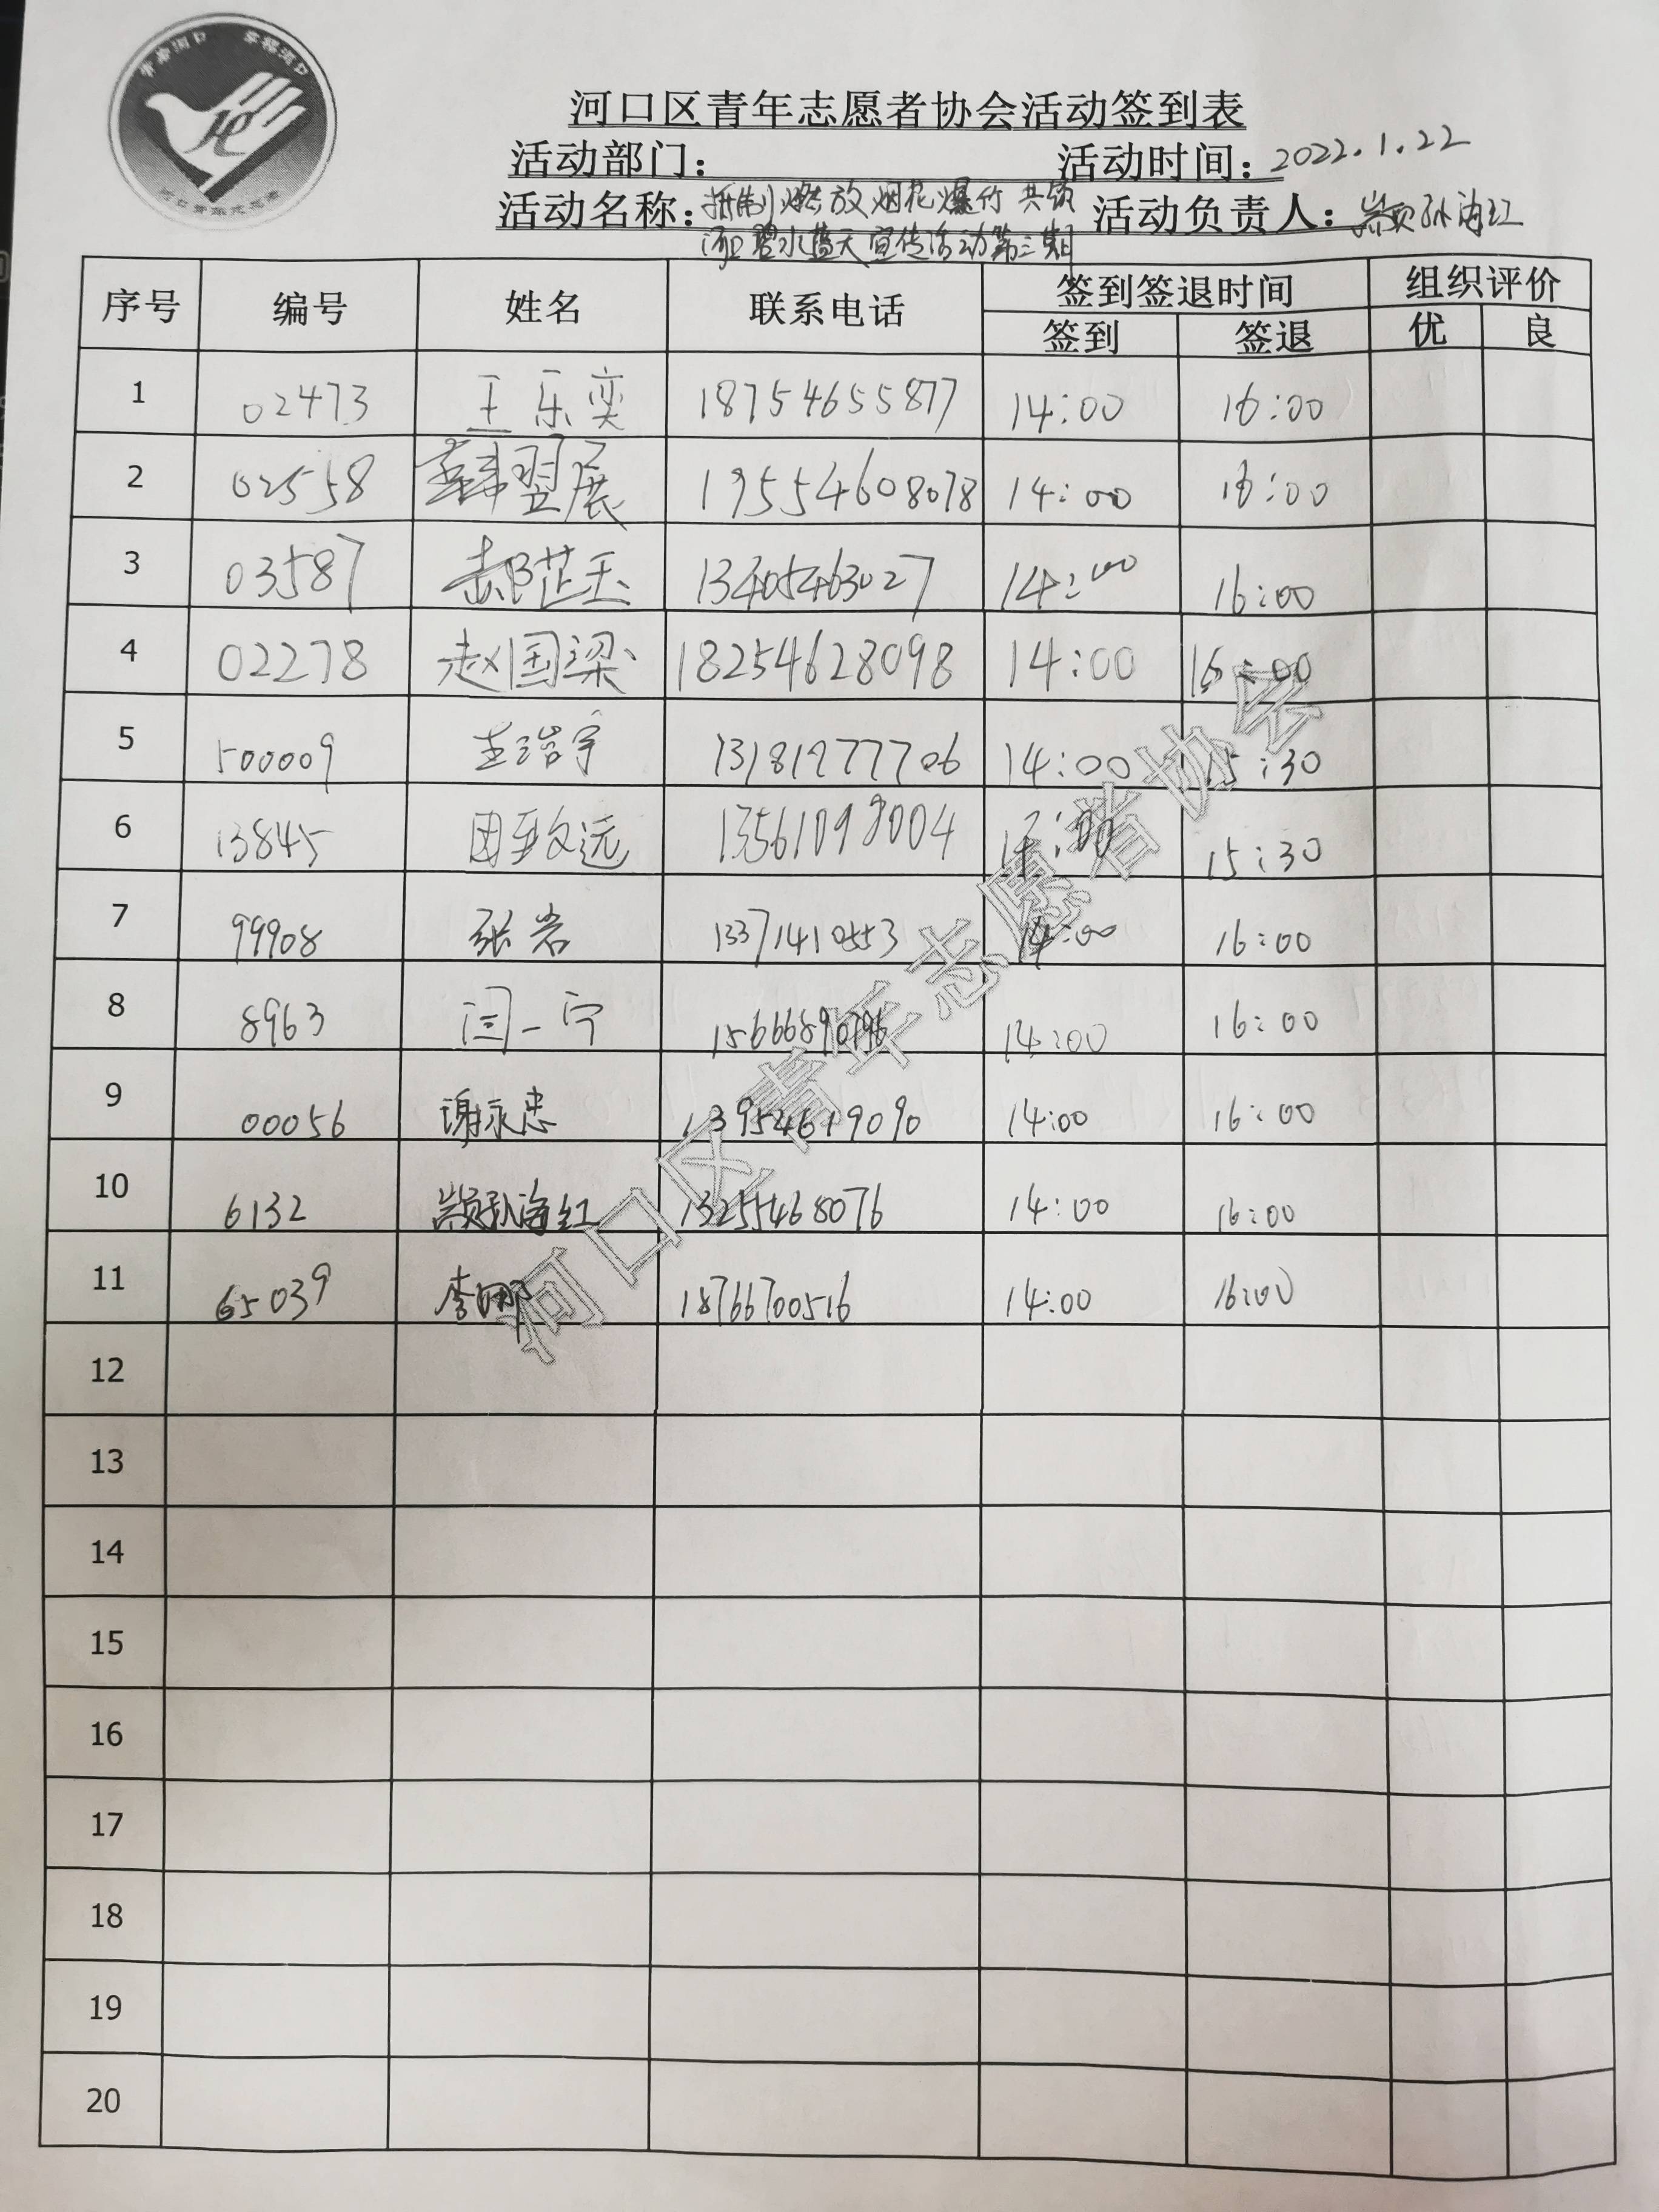 青春河口 幸福河口
河口区青年志愿者协会活动签到表
活动部门： 活动时间：2022.1.22
活动名称：抵制燃放烟花爆竹 共筑 活动负责人：颛孙海红
河口碧水蓝天宣传活动第三期
序号 编号 姓名 联系电话 签到签退时间 组织评价
签到 签退 优 良
1 02473 王乐奕 18754655877 14:00 16:00
2 02558 韩翌展 19554608078 14:00 16:00
3 03587 郝芷玉 13405463027 14:00 16:00
4 02278 赵国梁 18254628098 14:00 16:00
5 500009 王浩宇 13181277706 14:00 15:30
6 13845 田致远 13561098004 14:00 15:30
7 99908 张岩 13371410553 14:00 16:00
8 8963 闫一宁 15666890796 14:00 16:00
9 00056 谢永忠 13954619090 14:00 16:00
10 6132 颛孙海红 13255468076 14:00 16:00
11 65039 李娜 18766700516 14:00 16:00
12
13
14
15
16
17
18
19
20
河口区青年志愿者协会